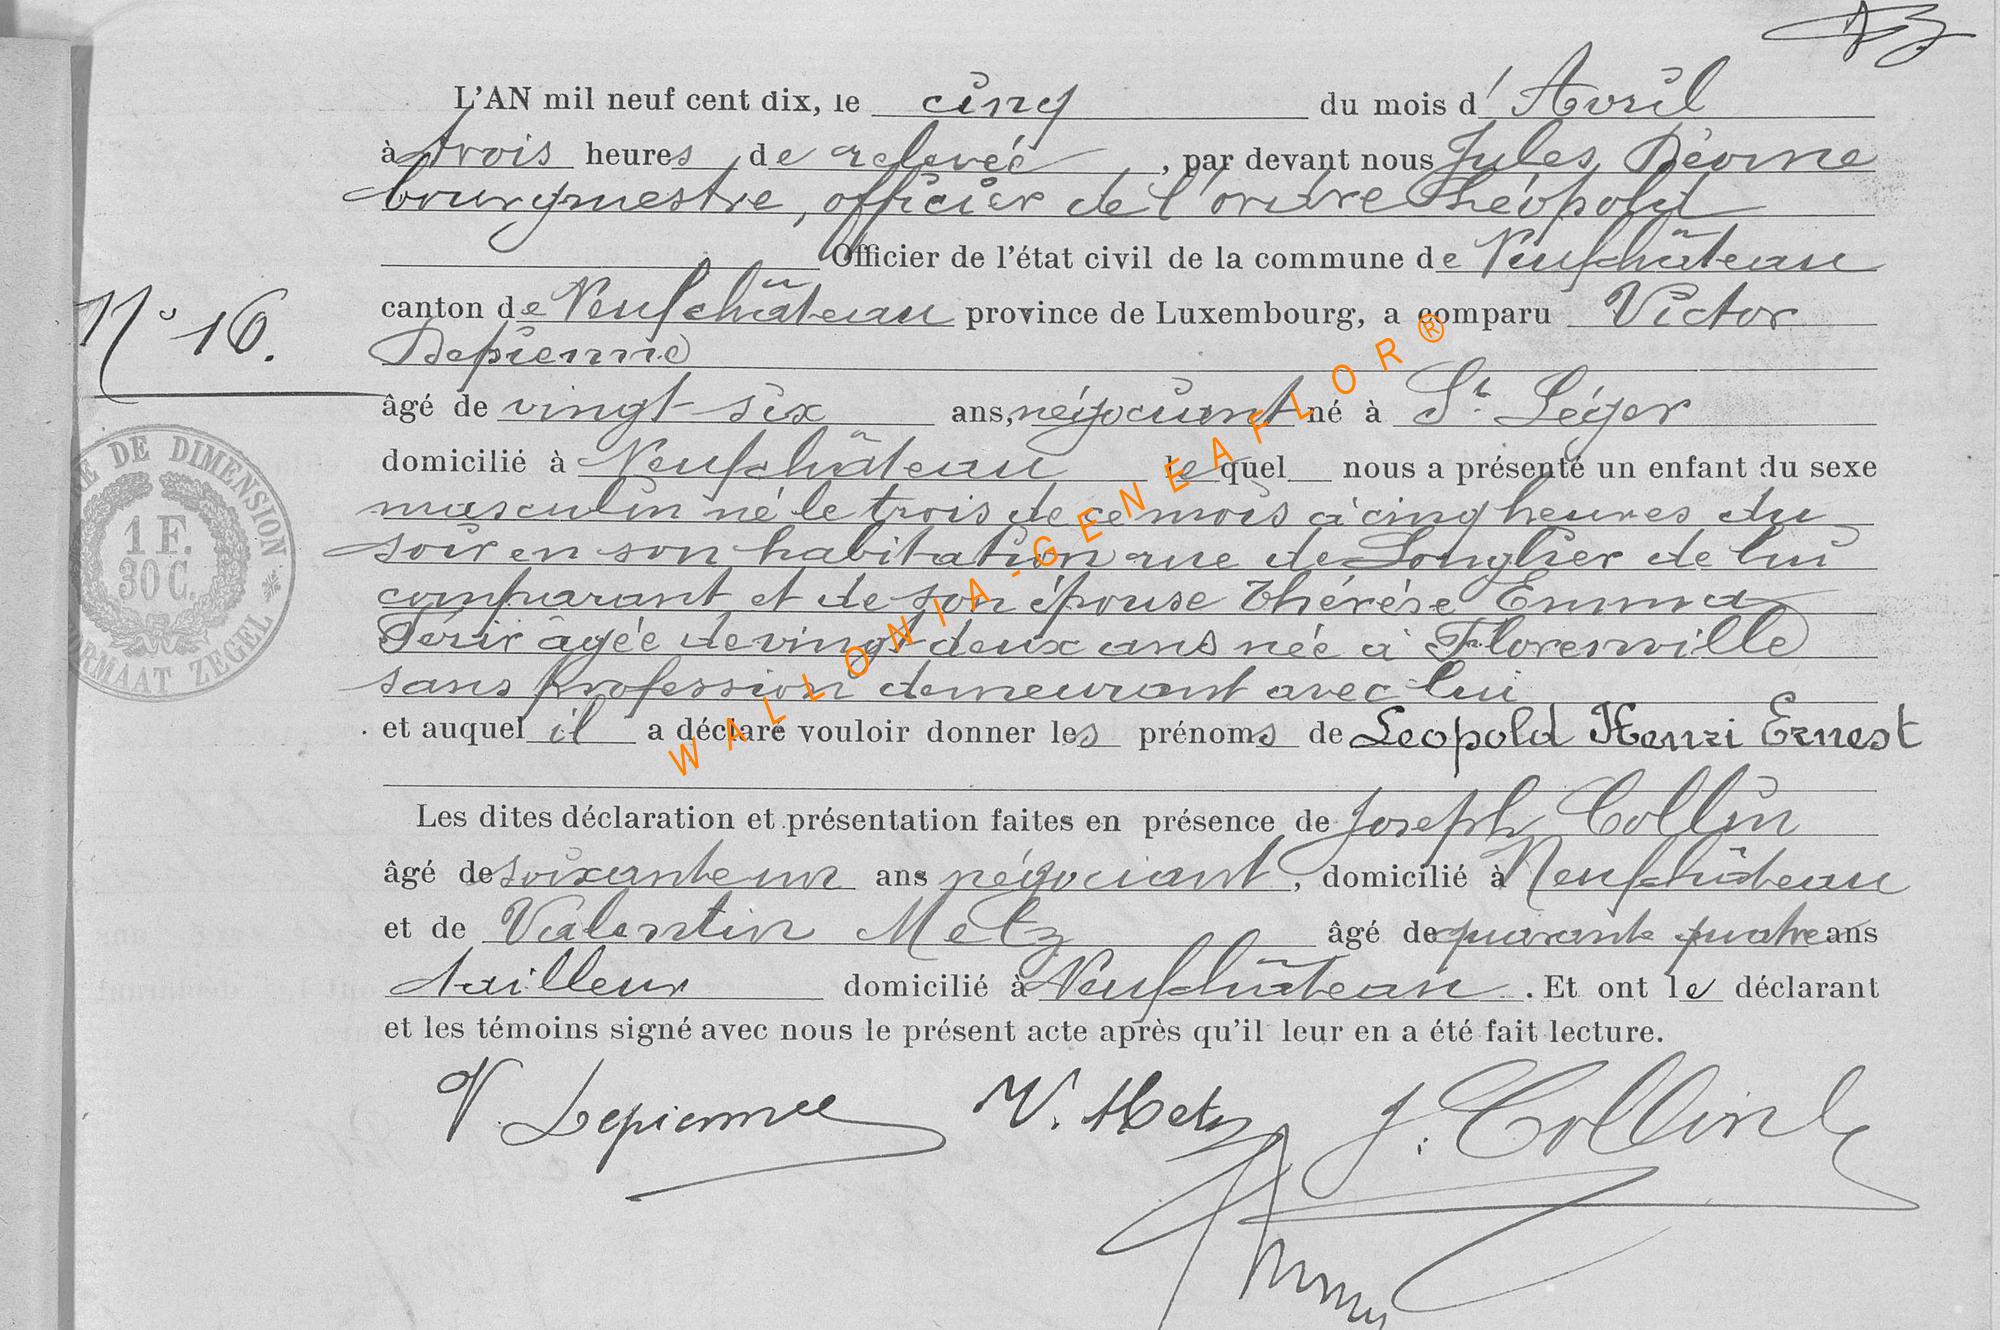 L'AN mil neuf cent dix, le cinq du mois d'Avril
à trois heures de relevée, par devant nous Jules
bourgmestre, officier de l'ordre Léopold
Officier de l'état civil de la commune de Neufchâteau
canton de Neufchâteau province de Luxembourg, a comparu Victor
N° 16.
Depienne
âgé de vingt-six ans, négociant né à St. Léger
domicilié à Neufchâteau lequel nous a présenté un enfant du sexe
masculin né le trois de ce mois à cinq heures du
soir en son habitation rue de Longlier de lui
comparant et de son épouse Thérèse Emma
âgée de vingt-deux ans née à Florenville
sans profession demeurant avec lui
et auquel il a déclaré vouloir donner les prénoms de Leopold Henri Ernest
Les dites déclaration et présentation faites en présence de Joseph Collin
âgé de soixante un ans négociant, domicilié à Neufchâteau
et de Valentin Metz âgé de quarante quatre ans
tailleur domicilié à Neufchâteau. Et ont le déclarant
et les témoins signé avec nous le présent acte après qu'il leur en a été fait lecture.
V. Depienne V. Metz J. Collin
DE DIMENSION
1 F.
30 C.
FORMAAT ZEGEL
WALLONIA-GENEAFLOR®